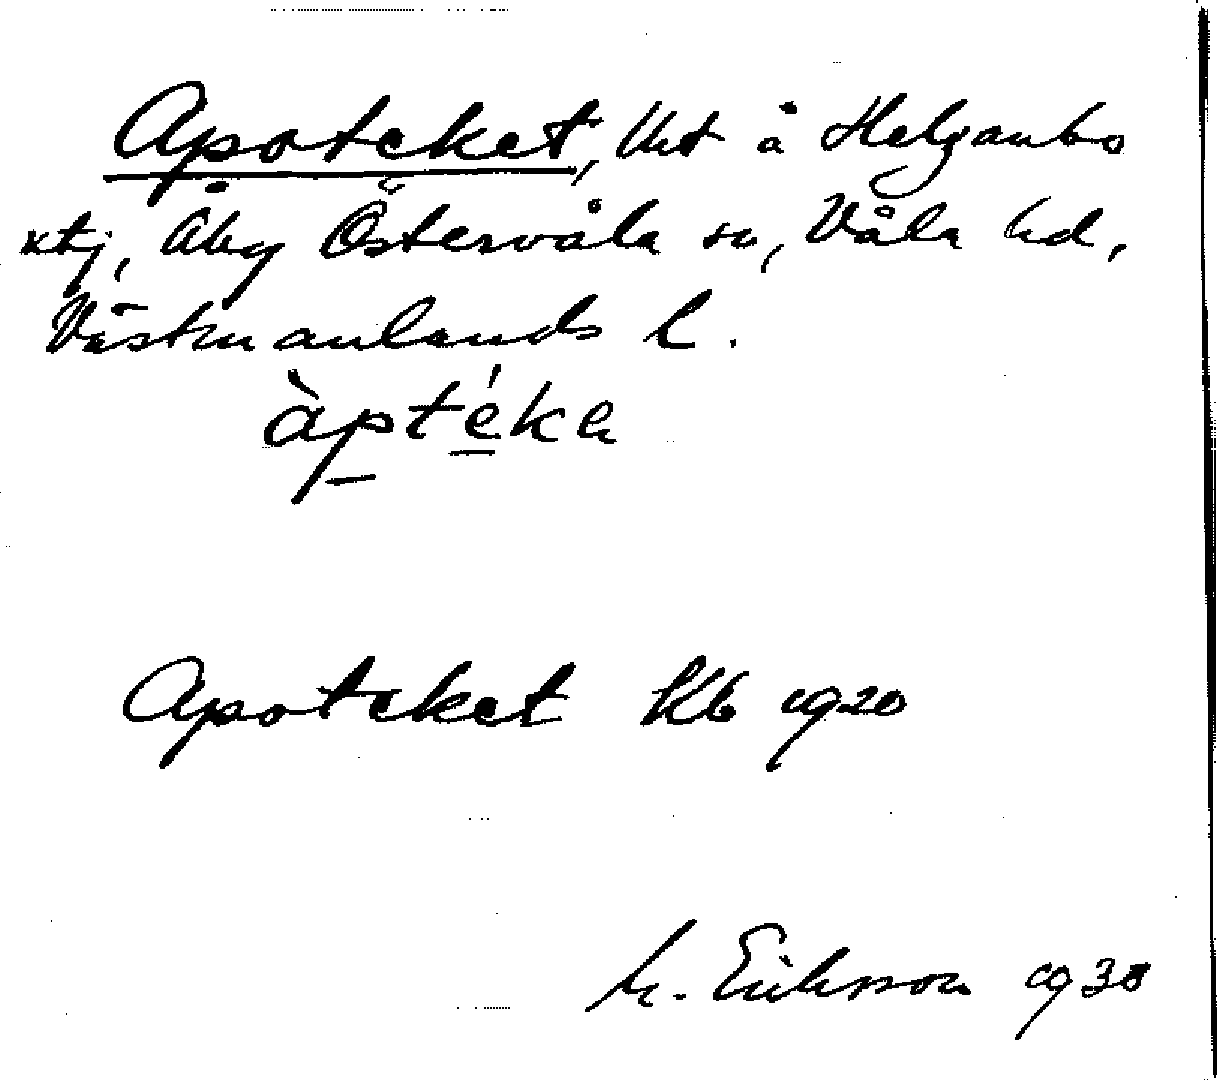 Apoteket, lht å Helganbo
ktj, Åby Östervåla sn, Våla hd,
Västmanlands l.
àptéka
Apoteket Kb 1920
M. Eriksson 1938